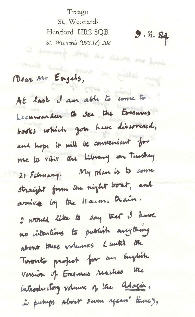 Treago
St. Weonards
Hereford HR2 8QB
9. II. 84
Dear Mr Engels,
At last I am able to come to
Leeuwarden to see the Erasmus
books which you have discovered,
and hope it will be convenient for
me to visit the Library on Tuesday
21 February. My plan is to come
straight from the night boat, and
arrive by the 11 a.m. train.
I would like to say that I have
no intentions to publish anything
about these volumes (until the
Toronto project for an English
version of Erasmus reaches the
introductory volume of the Adagia,
perhaps about seven years' time),